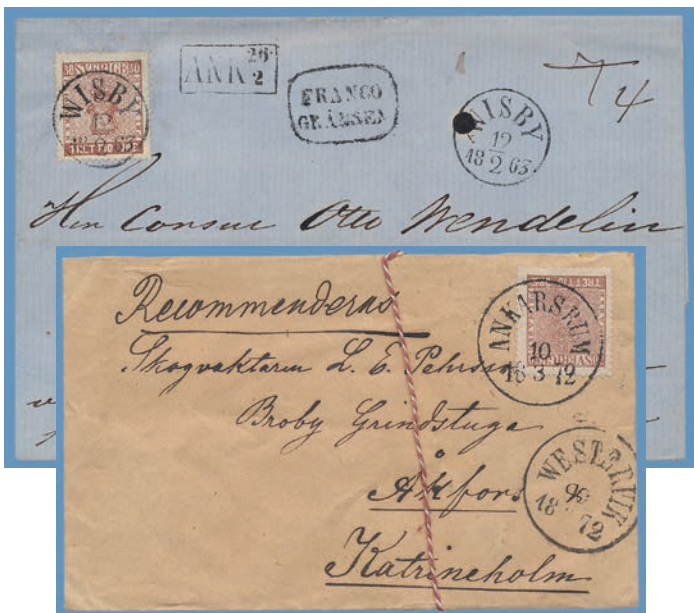 SVERIGE
WISBY
12
18 2 63
ANK 26/2
FRANCO
GRÄNSEN
WISBY
12
18 2 63
74
Herr Consul Otto Wendelin
Recommenderas
Skogvaktaren L. E. Pehrsson
Broby Grindstuga
Åkfors
Katrineholm
ANKARSRUM
10
18 3 72
WESTERVIK
18 72